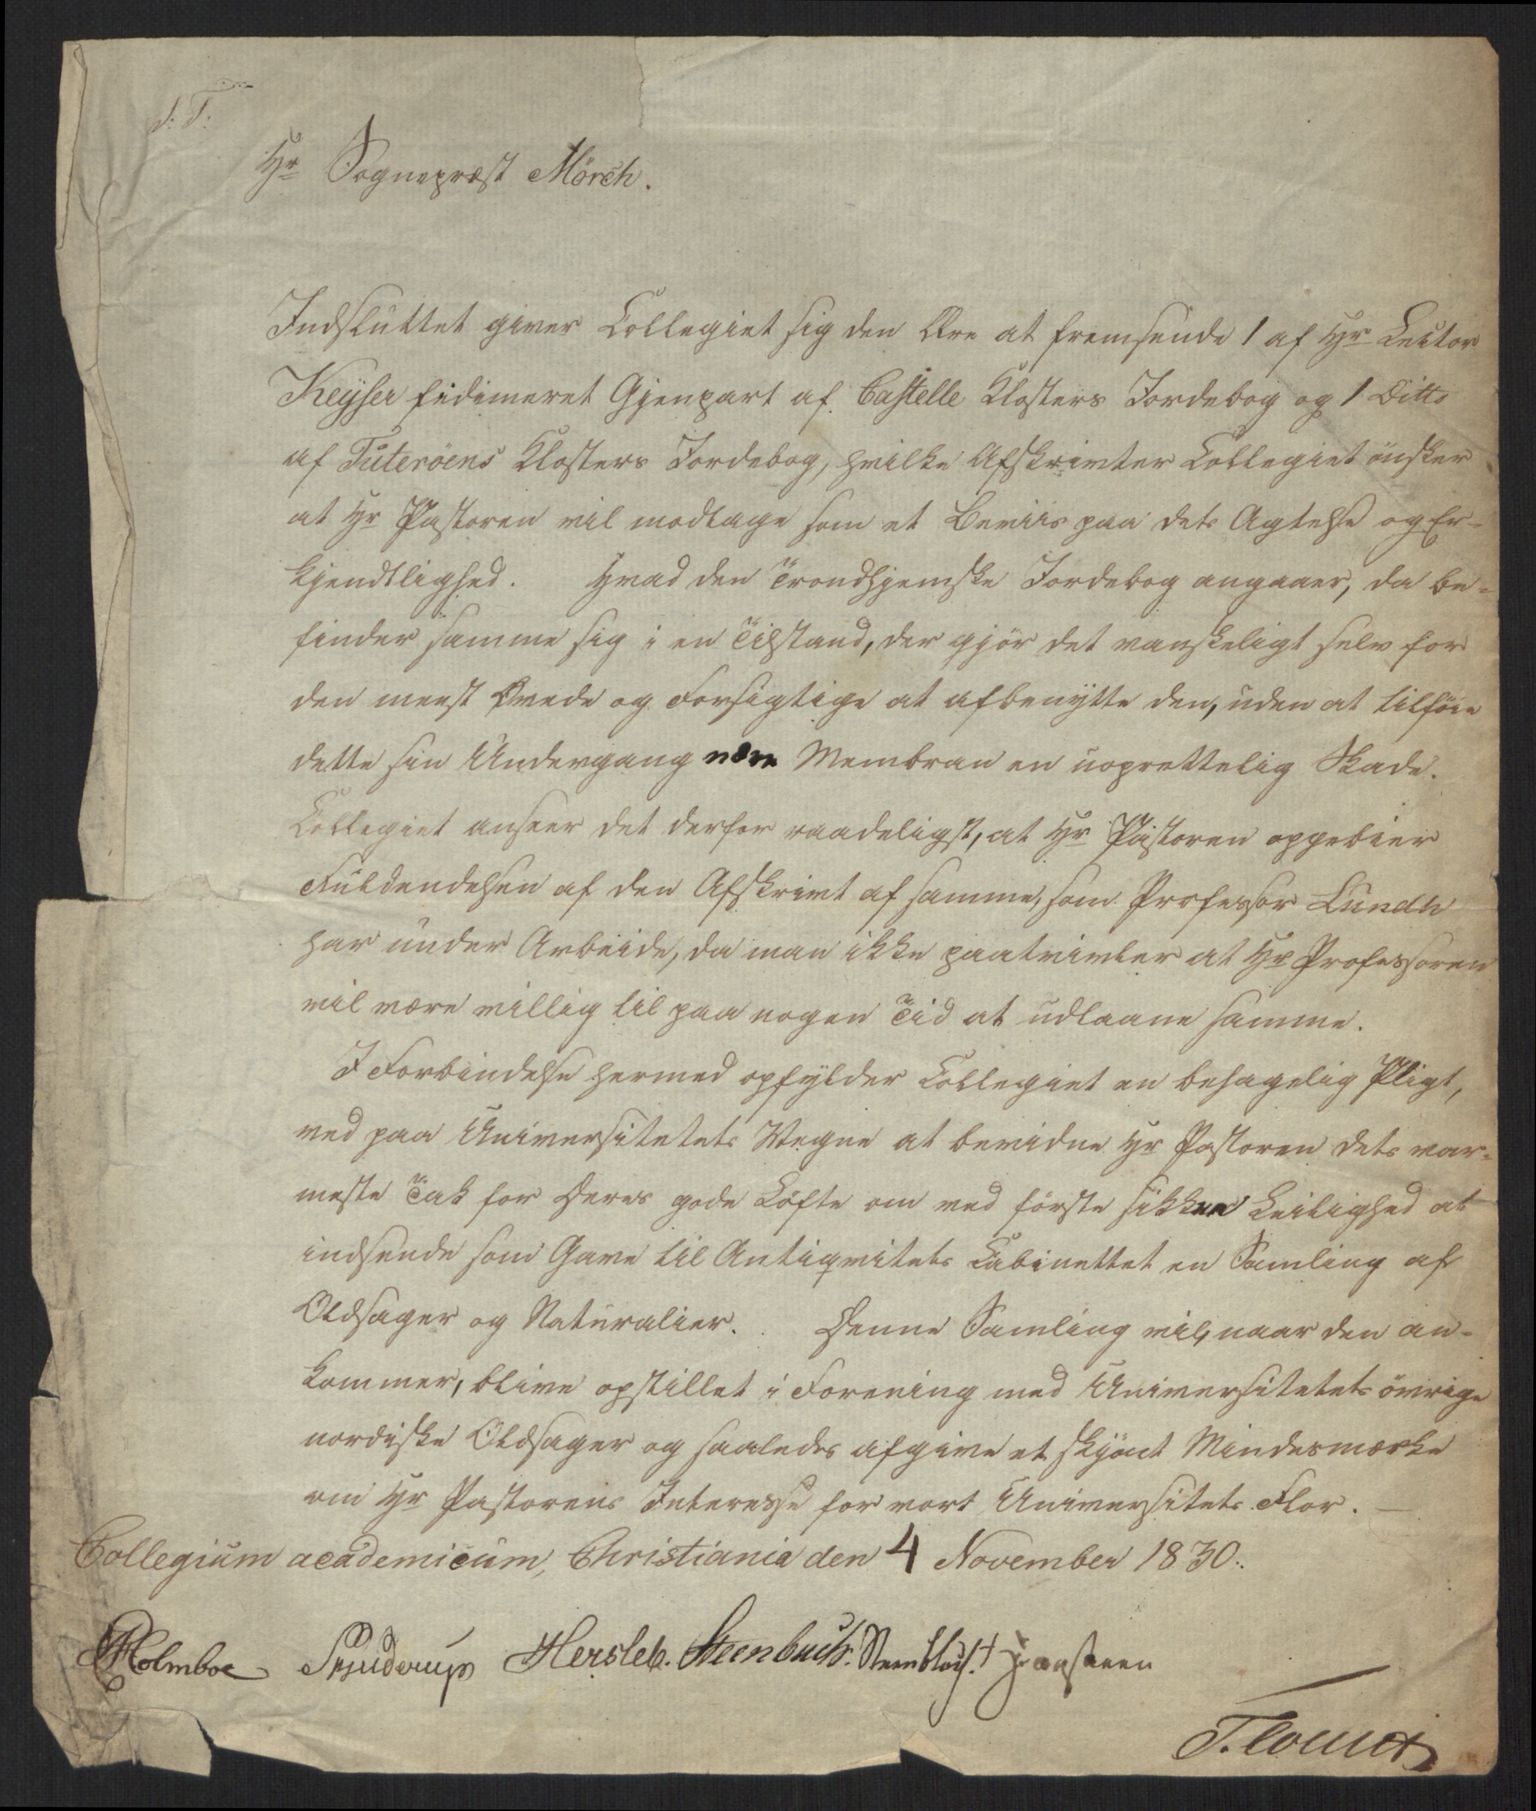 S: T:
Hr Sognepræst Mörch.
Indsluttet giver Collegiet sig den Ære at fremsende 1 af Hr Lector
Keyser fidimeret Gjenpart af Castelle Klosters Jordebog og 1 Ditto
af Tuteröens Klosters Jordebog, hvilke Afskrivter Collegiet önsker
at Hr Pastoren vil modtage som et Beviis paa dets Agtelse og Er-
kjendtlighed. Hvad den Trondhjemske Jordebog angaaer, da be-
finder samme sig i en Tilstand, der gjör det vanskeligt selv for
den meest Övede og Forsigtige at afbenytte den, uden at tilföie
dette sin Undergang nære Membran en uoprettelig Skade.
Collegiet anseer det derfor raadeligst, at Hr Pastoren oppebier
Fuldendelsen af den Afskrivt af samme, som Professor Lundh
har under Arbeide, da man ikke paatvivler at Hr Professoren
vil være villig til paa nogen Tid at udlaane samme.
I Forbindelse hermed opfylder Collegiet en behagelig Pligt,
ved paa Universitetets Vegne at bevidne Hr Pastoren dets var-
meste Tak for Deres gode Löfte om ved förste sikker Leilighed at
indsende som Gave til Antiqvitets Cabinettet en Samling af
Oldsager og Naturalier. Denne Samling vil, naar den an-
kommer, blive opstillet i Forening med Universitetets övrige
nordiske Oldsager og saaledes afgive et skjönt Mindesmærke
om Hr Pastorens Interesse for vort Universitets Flor. —
Collegium academicum, Christiania den 4 November 1830.
Holmboe Skjelderup Hersleb. Steenbuch. Steenbloch. Hansteen